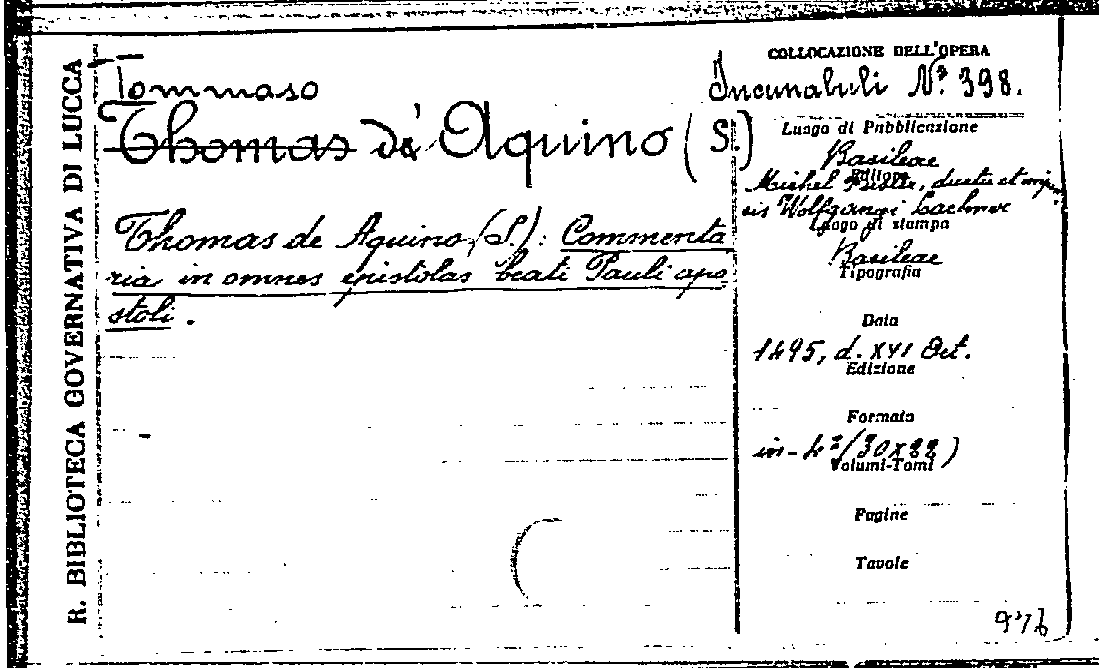 R. BIBLIOTECA GOVERNATIVA DI LUCCA
Tommaso
Thomas de Aquino (S.)
Thomas de Aquino (S.): Commenta
ria in omnes epistolas beati Pauli apo
stoli.
COLLOCAZIONE DELL'OPERA
Incunabuli N.° 398.
Luogo di Pubblicazione
Basileae
Editore
Michel ductu et
sis Wolfgangi Lachner
Luogo di stampa
Basileae
Tipografia
Data
1495, d. XVI Oct.
Edizione
Formato
in-4° (30x22)
Volumi-Tomi
Pagine
Tavole